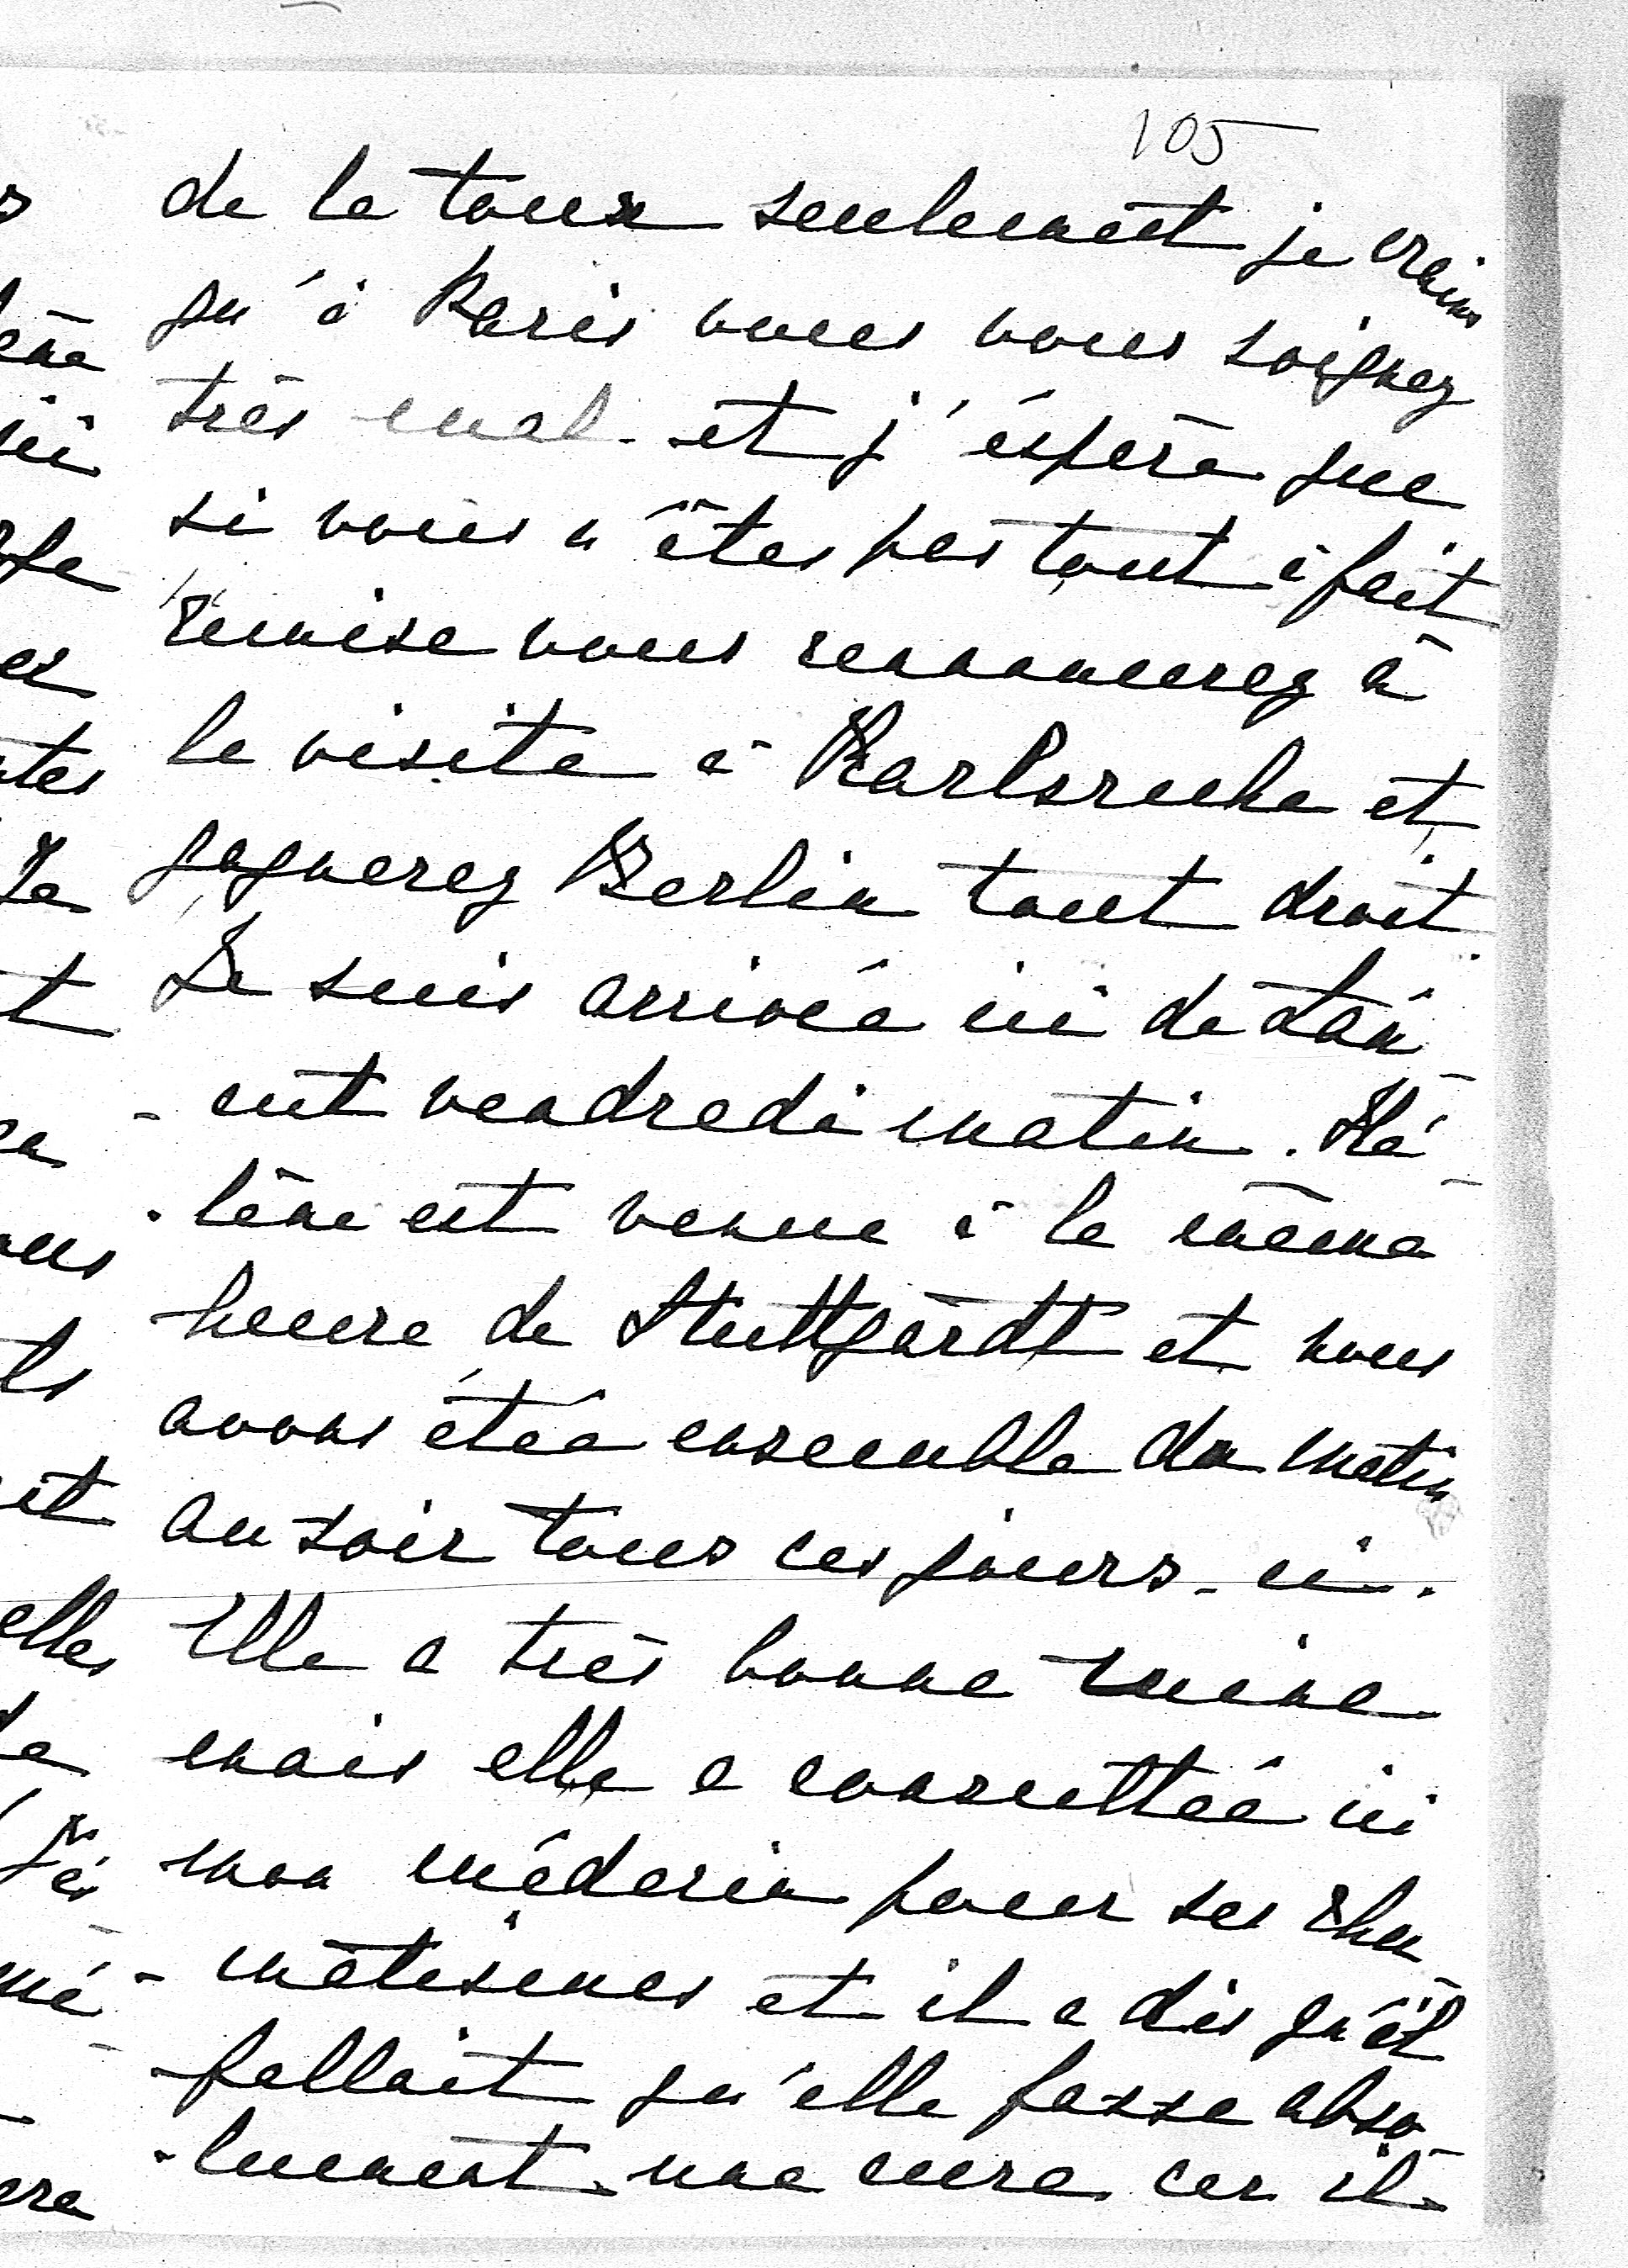 105
de la toux seulement je crains
qu'à Paris vous vous soignez
très mal. et j'éspère que
si vous n'êtes pas tout à fait
remise vous renoncerez à
la visite à Karlsruhe et
gagnerez Berlin tout droit.
Je suis arrivée ici de
-cut vendredi matin. Hé-
-lène est venue à la même
heure de Stuttgardt et nous
avons étée ensemble du matin
au soir tous ces jours-ci.
Elle a très bonne mine
mais elle a consultée ici
mon médecin pour ses rhu
-matismes et il a dis qu'il
fallait qu'elle fasse abso-
-lument une cure car il